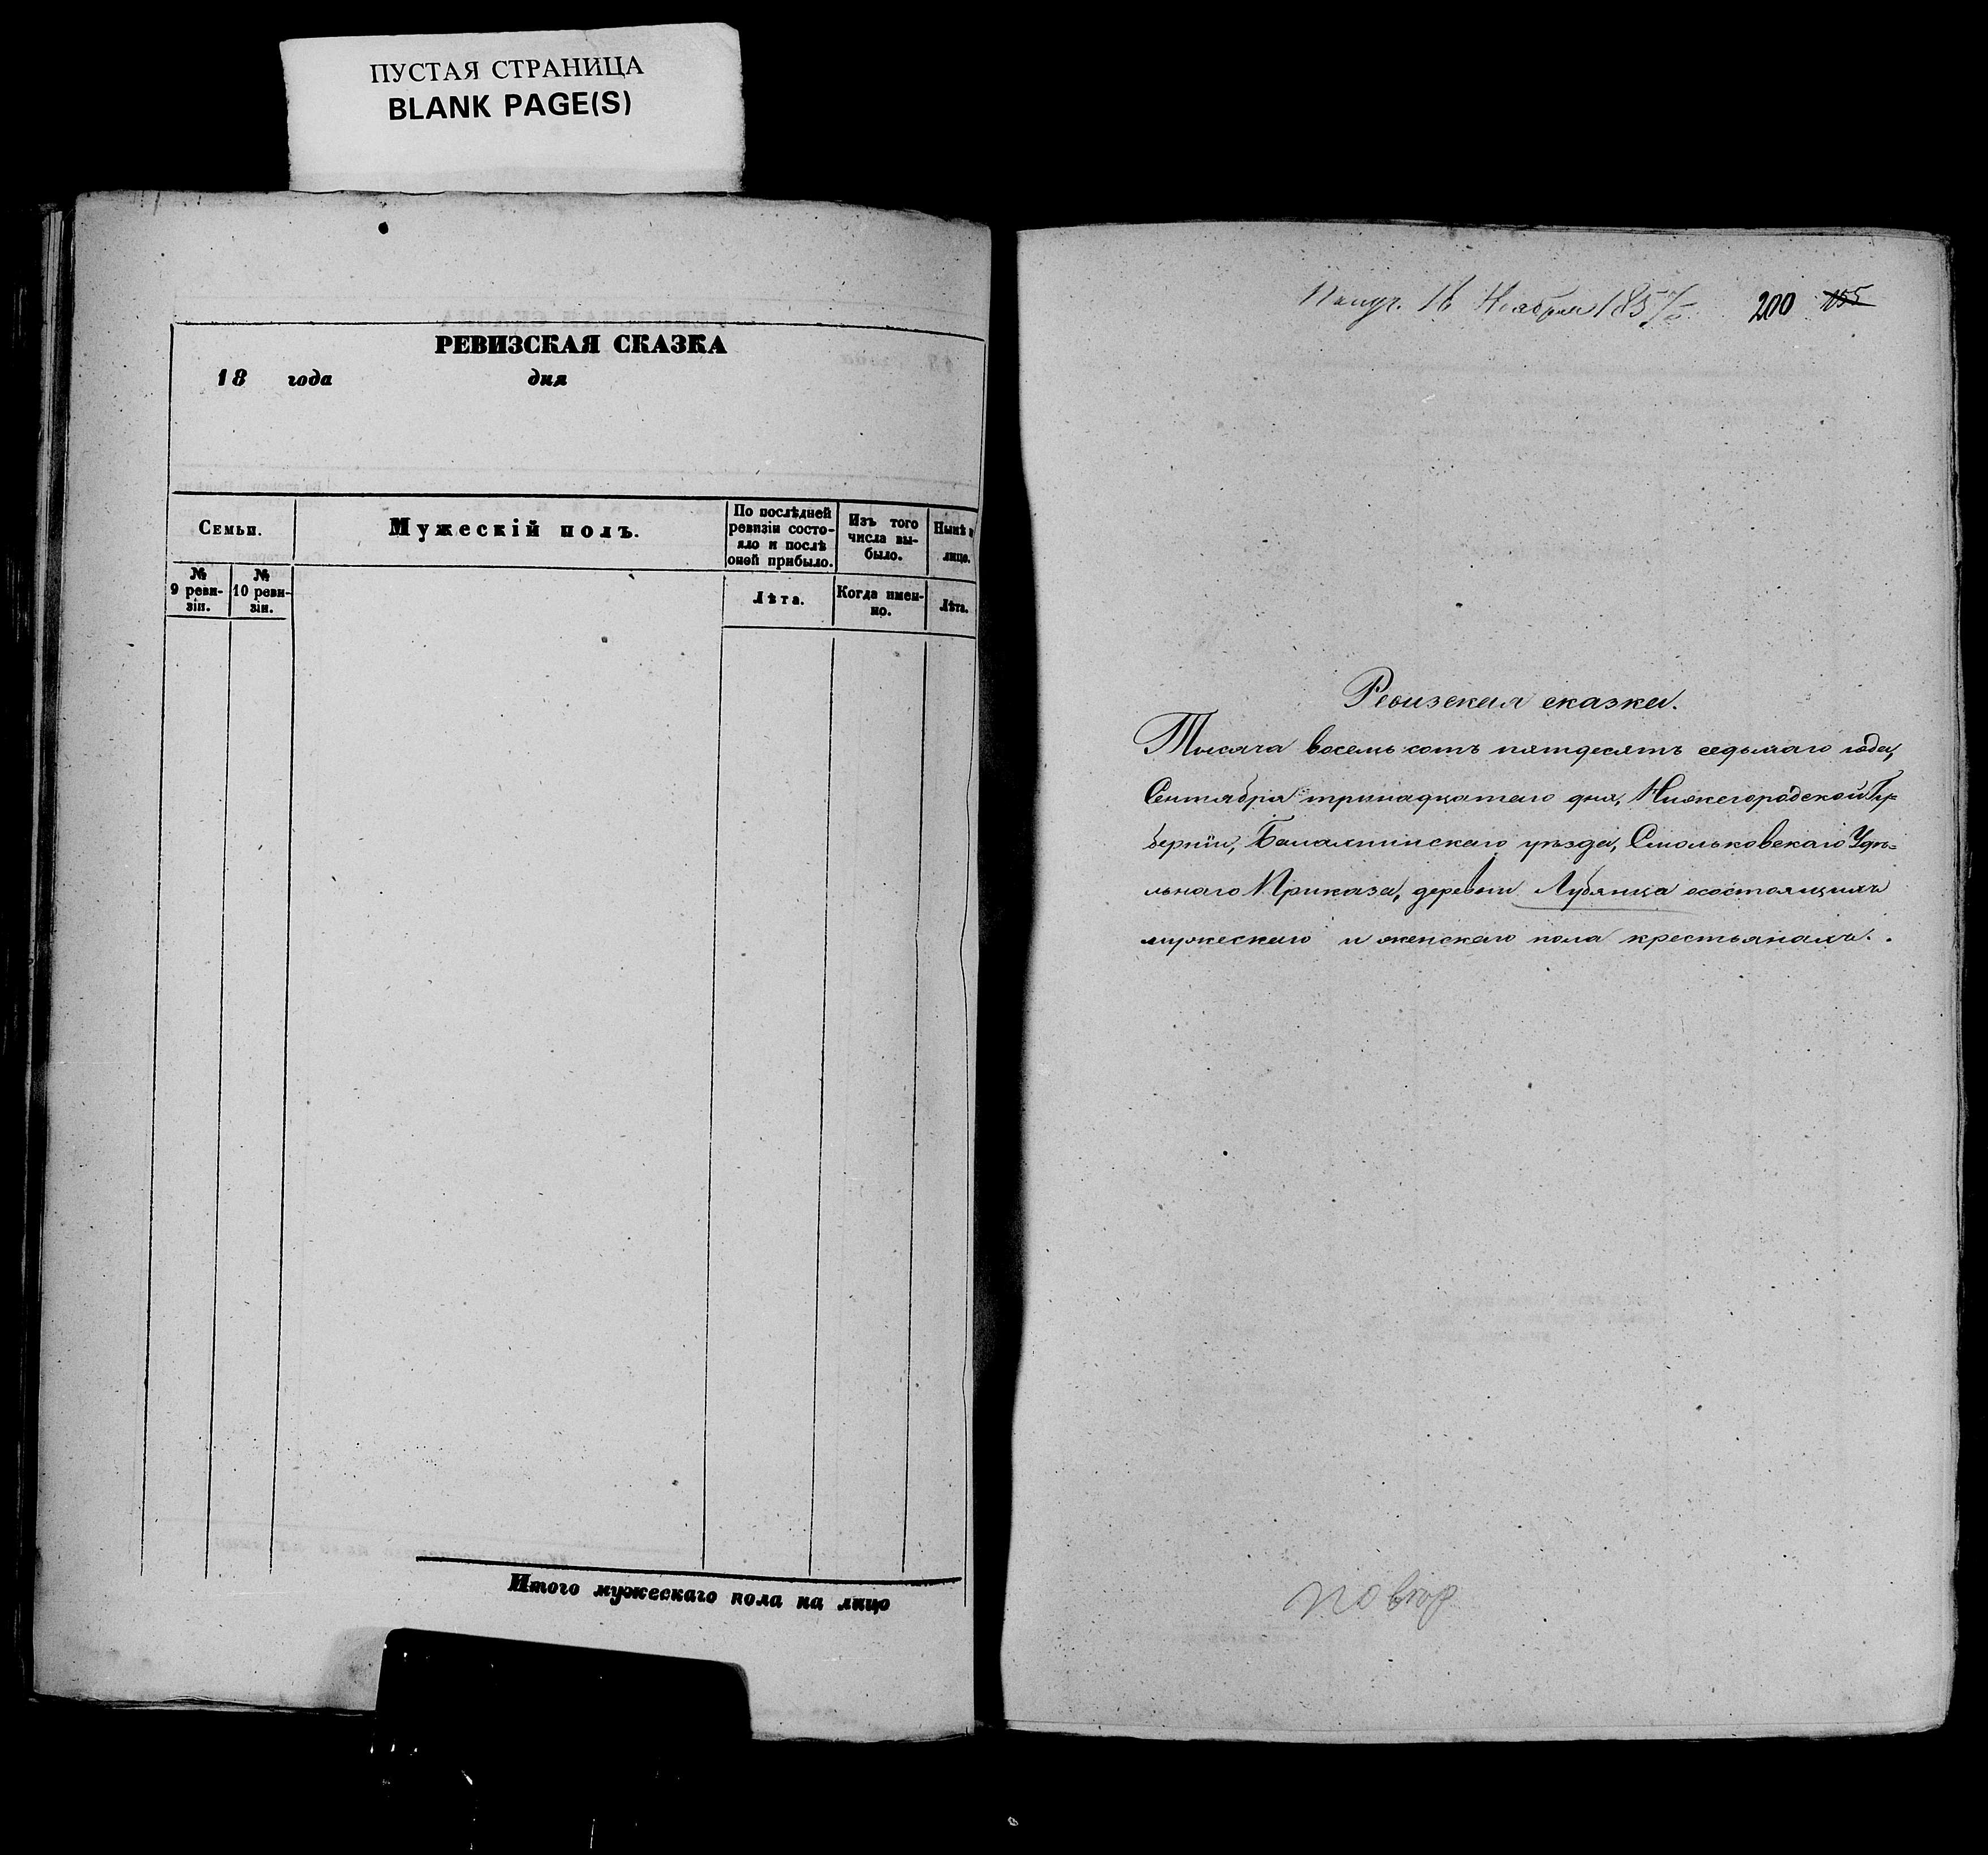 ПУСТАЯ СТРАНИЦА
BLANK PAGE(S)
РЕВИЗСКАЯ СКАЗКА
18 года дня
Семьи.
Мужескій полъ.
По послѣдней ревизіи состо-
яло и послѣ
оной прибыло.
Изъ того
числа вы-
было.
Нынѣ
лицо.
№
9 реви-
зіи.
№
10 реви-
зіи.
Лѣта.
Когда имен-
но.
Лѣта.
Итого мужескаго пола на лицо
Получ. 16 Ноября 1857 г. 200 155
Ревизская сказка.
Тысяча восемь сотъ пятдесятъ седьмаго года,
Сентября тринадцатаго дня, Нижегородской Гу=
берніи, Балахнинскаго уѣзда, Смольковскаго Удѣ=
льнаго Приказа, деревни Лубянца осостоящихъ
мужескаго и женскаго пола крестьянахъ.
повтор